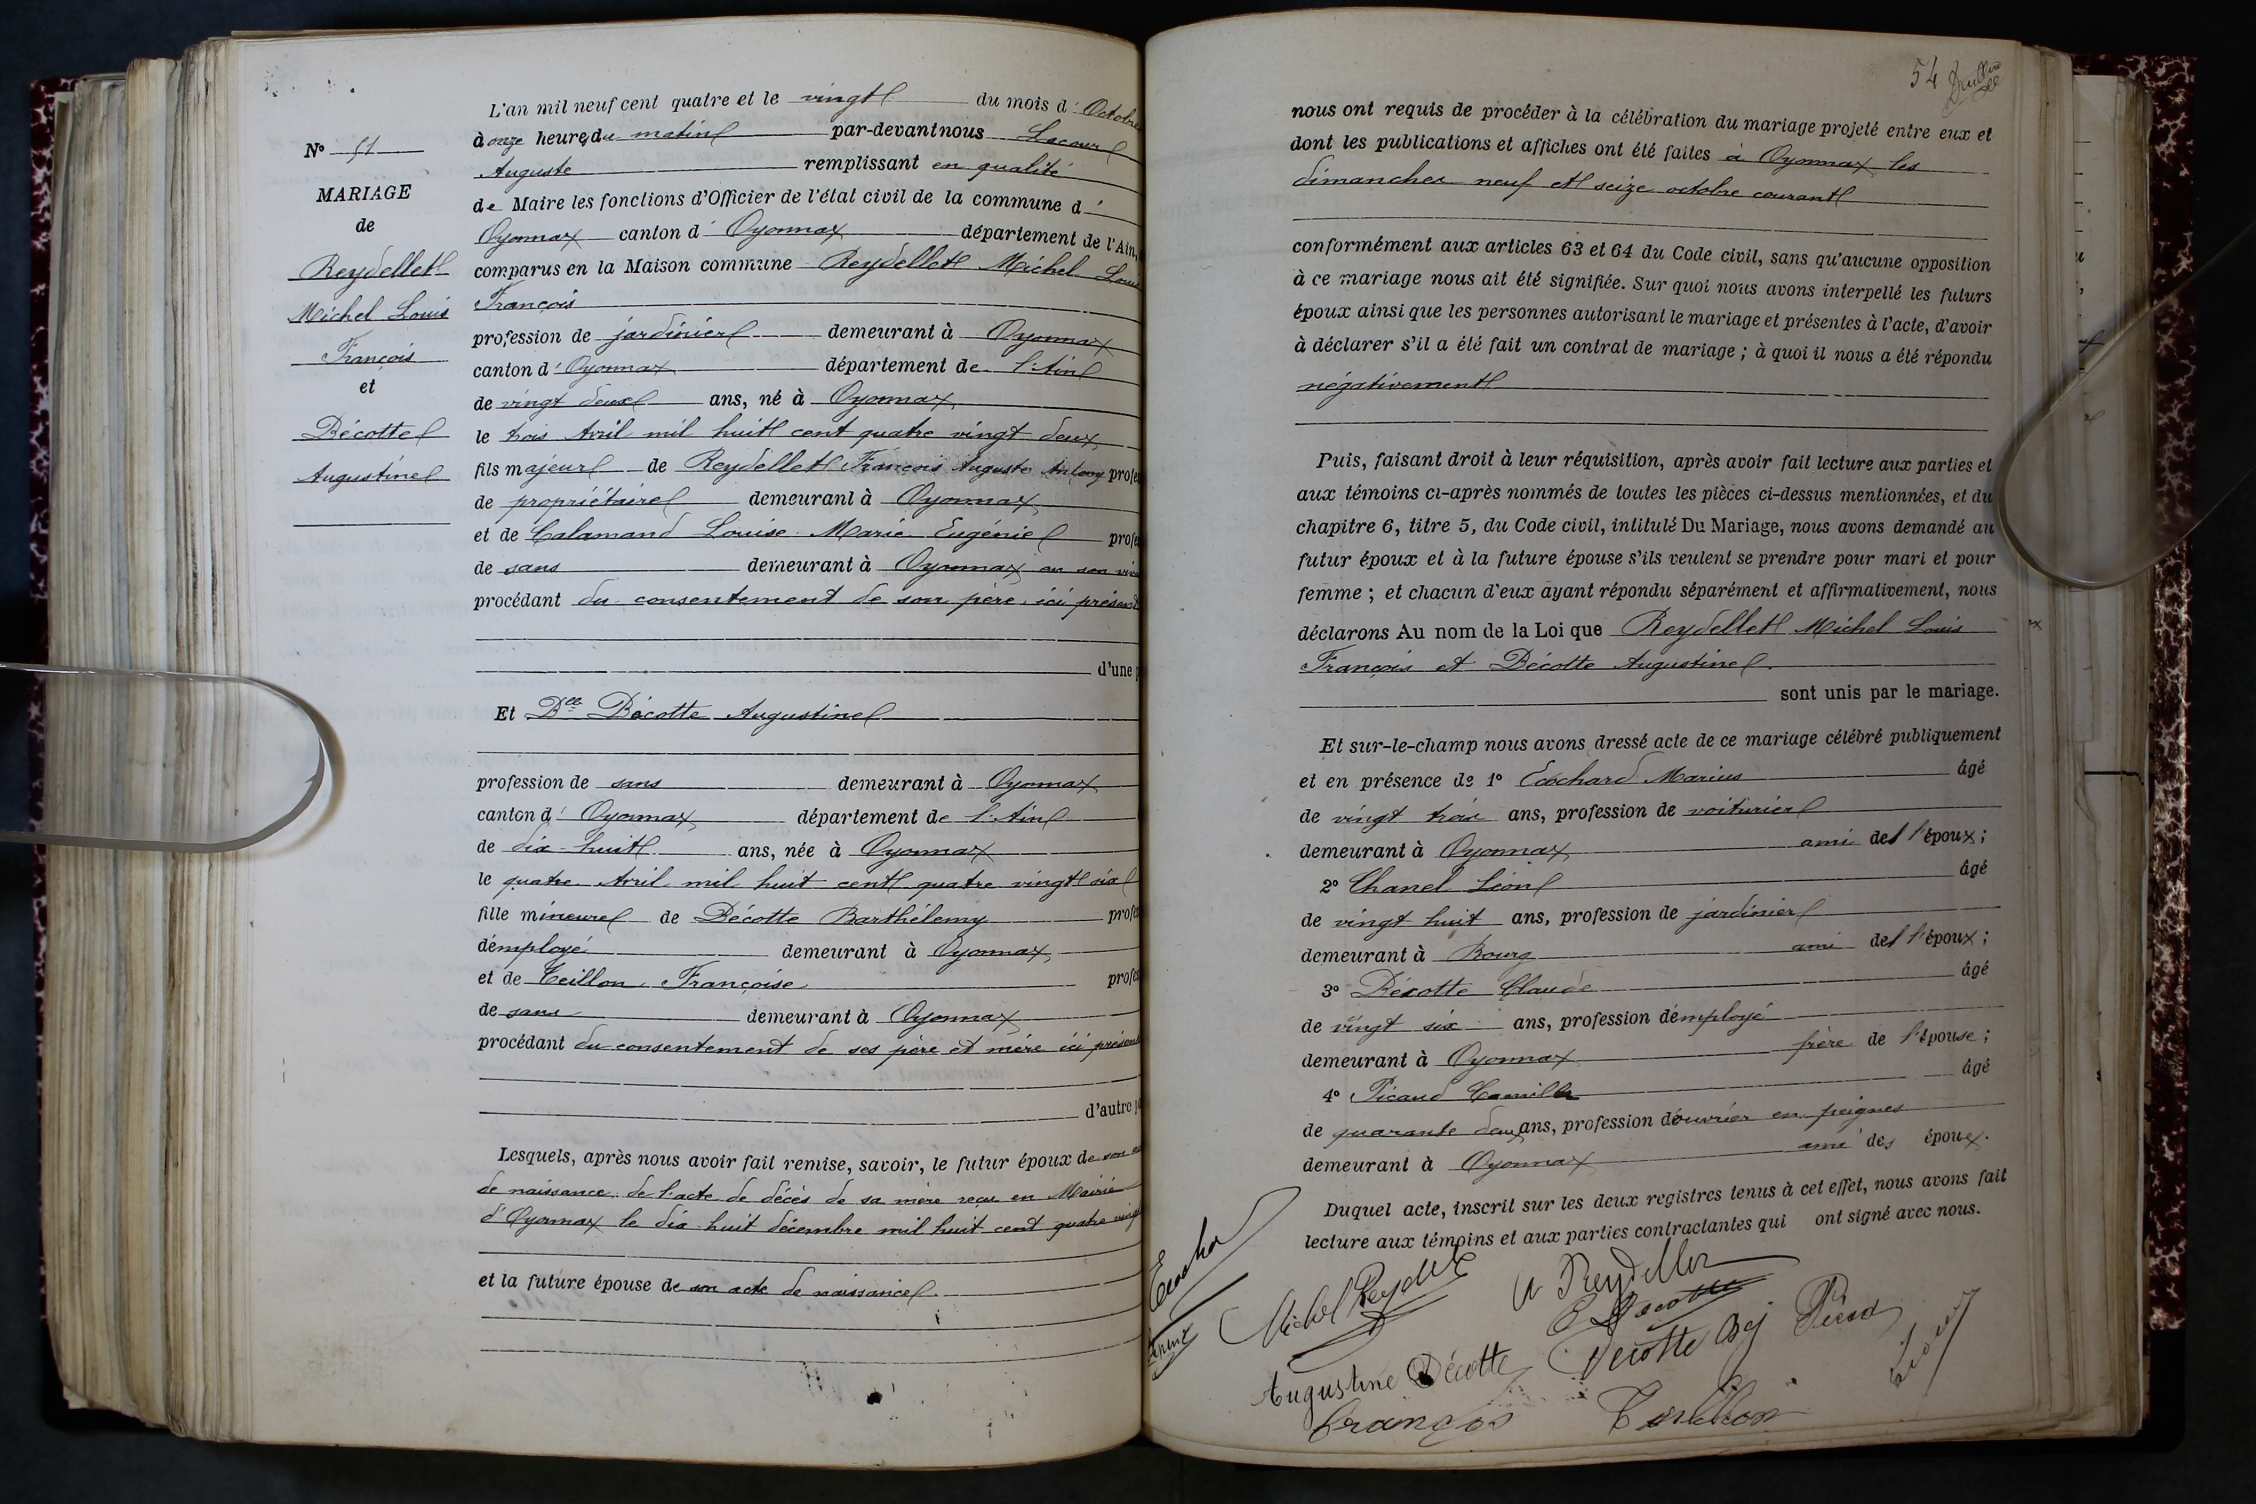 L'an mil neuf cent quatre et le vingt du mois d' Octobre
à onze heures du matin par-devant nous Lacour
Auguste remplissant en qualité
de Maire les fonctions d'Officier de l'état civil de la commune d'
Oyonnax canton d' Oyonnax département de l'Ain,
comparus en la Maison commune Reydellet Michel Louis
François
profession de jardinier demeurant à Oyonnax
canton d' Oyonnax département de l'Ain
de vingt deux ans, né à Oyonnax
le trois Avril mil huit cent quatre vingt deux
fils majeur de Reydellet François Auguste Antony profes
de propriétaire demeurant à Oyonnax
et de Calamand Louise Marie Eugénie profes
de sans demeurant à Oyonnax en son viv
procédant du consentement de son père ici présent
d'une p
Et Dlle Décotte Augustine
profession de sans demeurant à Oyonnax
canton d' Oyonnax département de l'Ain
de dix huit ans, née à Oyonnax
le quatre Avril mil huit cent quatre vingt six
fille mineure de Décotte Barthélemy profes
d'employé demeurant à Oyonnax
et de Teillon Françoise profes
de sans demeurant à Oyonnax
procédant du consentement de ses père et mère ici présent
d'autre pa
Lesquels, après nous avoir fait remise, savoir, le futur époux de son
de naissance de l'acte de décès de sa mère reçu en Mairie
d'Oyonnax le dix huit décembre mil huit cent quatre vingt
et la future épouse de son acte de naissance
N° 51
MARIAGE
de
Reydellet
Michel Louis
François
et
Décotte
Augustine
54
nous ont requis de procéder à la célébration du mariage projeté entre eux et
dont les publications et affiches ont été faites à Oyonnax les
dimanches neuf et seize octobre courant
conformément aux articles 63 et 64 du Code civil, sans qu'aucune opposition
à ce mariage nous ait été signifiée. Sur quoi nous avons interpellé les futurs
époux ainsi que les personnes autorisant le mariage et présentes à l'acte, d'avoir
à déclarer s'il a été fait un contrat de mariage ; à quoi il nous a été répondu
négativement
Puis, faisant droit à leur réquisition, après avoir fait lecture aux parties et
aux témoins ci-après nommés de toutes les pièces ci-dessus mentionnées, et du
chapitre 6, titre 5, du Code civil, intitulé Du Mariage, nous avons demandé au
futur époux et à la future épouse s'ils veulent se prendre pour mari et pour
femme ; et chacun d'eux ayant répondu séparément et affirmativement, nous
déclarons Au nom de la Loi que Reydellet Michel Louis
François et Décotte Augustine
sont unis par le mariage.
Et sur-le-champ nous avons dressé acte de ce mariage célébré publiquement
et en présence de 1° Ecochard Marius âgé
de vingt trois ans, profession de voiturier
demeurant à Oyonnax ami de l'époux ;
2° Chanel Léon âgé
de vingt huit ans, profession de jardinier
demeurant à Bourg ami de l'époux ;
3° Décotte Claude âgé
de vingt six ans, profession d'employé
demeurant à Oyonnax frère de l'épouse ;
4° Picaud Camille âgé
de quarante deux ans, profession d'ouvrier en peignes
demeurant à Oyonnax ami des époux.
Duquel acte, inscrit sur les deux registres tenus à cet effet, nous avons fait
lecture aux témoins et aux parties contractantes qui ont signé avec nous.
Michel Reydellet
A Reydellet
C Decotte
Augustine Décotte
Décotte Bj
Picaud